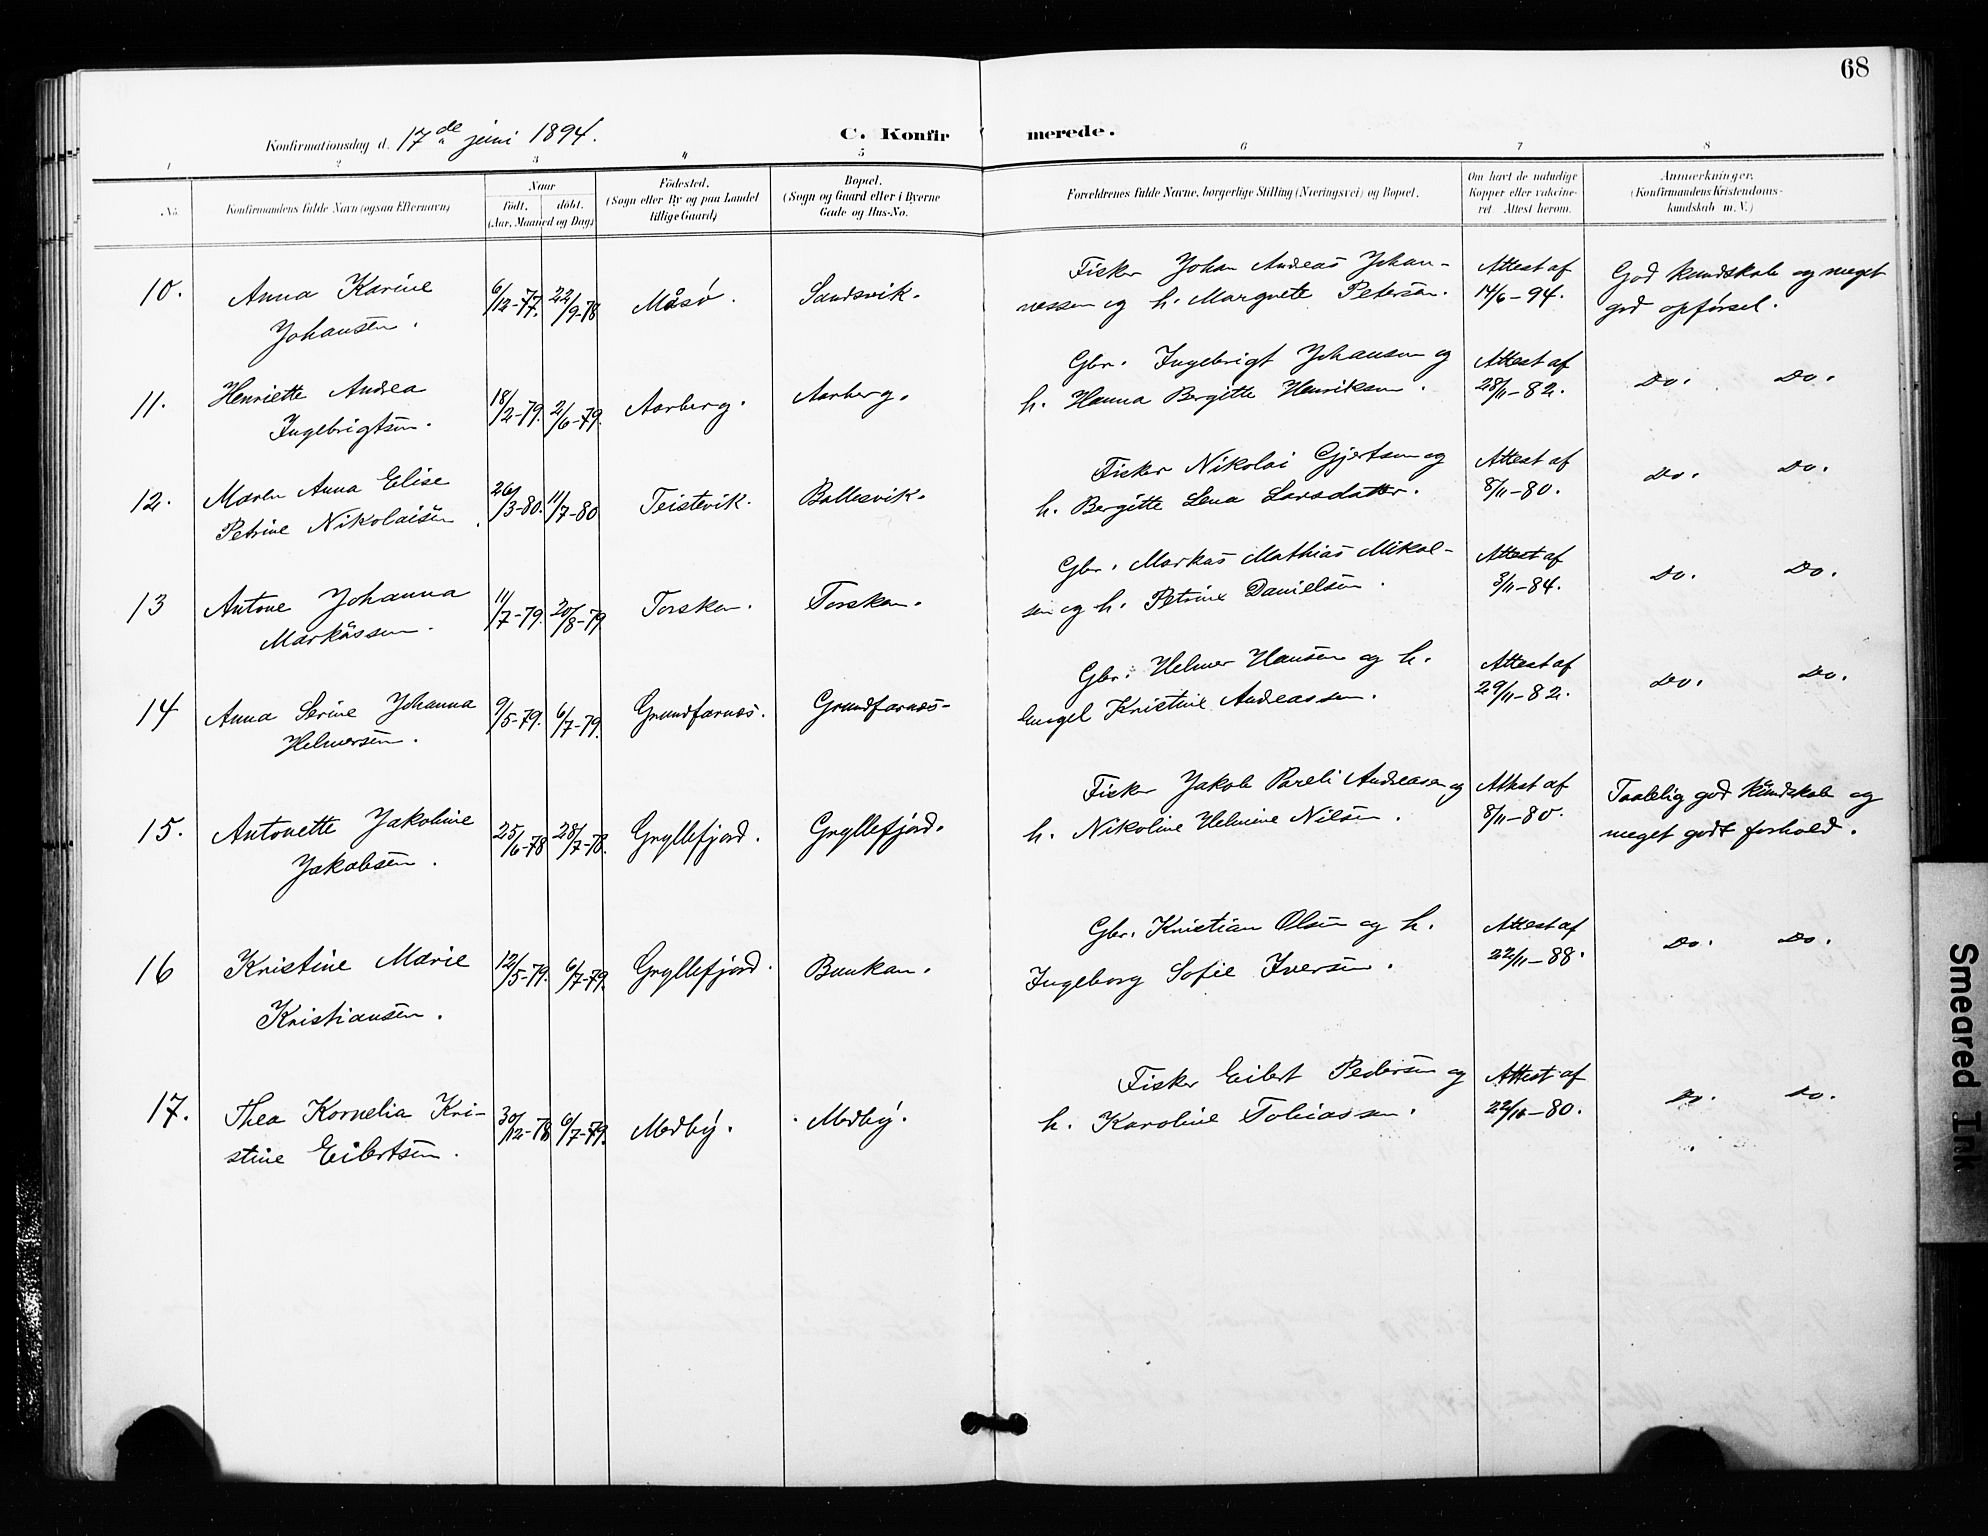 68
Konfirmationsdag d. 17de juni 1894.
C. Konfirmerede.
1 2 3 4 5 6 7 8
No.
Konfirmandens fulde Navn (ogsaa Efternavn)
Naar
født. døbt.
(Aar, Maaned og Dag)
Fødested.
(Sogn eller By og paa Landet
tillige Gaard)
Bopæl.
(Sogn og Gaard eller i Byerne
Gade og Hus-No.
Forældrenes fulde Navne, borgerlige Stilling (Næringsvei) og Bopæl.
Om havt de naturlige
Kopper eller vakcine-
ret. Attest herom.
Anmærkninger.
(Konfirmandens Kristendoms-
kundskab m. V.)
10. Anna Karine
Johansen.
6/12-77. 22/9-78 Måsø. Sandsvik.
Fisker Johan Andreas Johan-
nessen og h. Margrete Petersen.
Attest af
14/6-94.
God kundskab og meget
god opførsel.
11. Henriette Andrea
Ingebrigtsen.
18/2-79. 2/6-79. Aarberg. Aarberg.
Gbr. Ingebrigt Johansen og
h. Hanna Bergitte Henriksen.
Attest af
28/11-82.
Do. Do.
12. Maren Anna Elise
Petrine Nikolaisen.
26/3-80. 11/7-80 Teistevik. Ballesvik.
Fisker Nikolai Gjertsen og
h. Bergitte Lena Larsdatter.
Attest af
8/11-80.
Do. Do.
13 Antone Johanna
Markåssen.
11/7-79. 20/8-79 Torsken. Torsken.
Gbr. Markas Mathias Mikal-
sen og h. Petrine Danielsen.
Attest af
3/11-84.
Do. Do.
14 Anna Serine Johanna
Helmersen.
9/5-79. 6/7-79. Grundfarnæs. Grundfarnæs-
Gbr. Helmer Hansen og h.
Engel Kristine Andreassen.
Attest af
29/11-82.
Do. Do.
15. Antonette Jakobine
Jakobsen.
25/6-78 28/7-78. Gryllefjord. Gryllefjord.
Fisker Jakob Pareli Andreasen og
h. Nikoline Helmine Nilsen.
Attest af
8/11-80.
Taalelig god kundskab og
meget godt forhold.
16 Kristine Marie
Kristiansen.
12/5-79. 6/7-79. Gryllefjord. Bunkan.
Gbr. Kristian Olsen og h.
Ingeborg Sofie Iversen.
Attest af
22/11-88.
Do. Do.
17. Thea Kornelia Kri-
stine Eilertsen.
30/12-78 6/7-79. Medby. Medby.
Fisker Eilert Pedersen og
h. Karoline Tobiassen.
Attest af
22/11-80.
Do. Do.
Smeared Ink